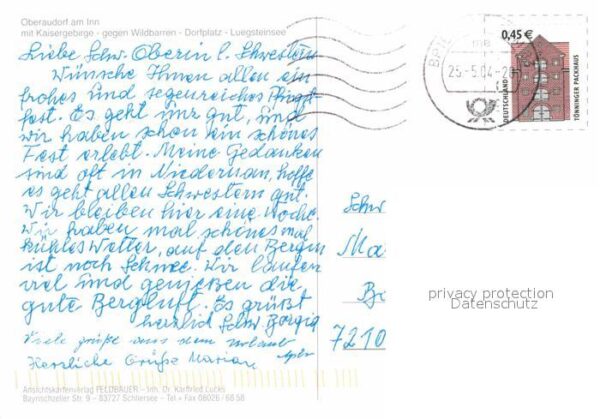 Oberaudorf am Inn
mit Kaisergebirge - gegen Wildbarren - Dorfplatz - Luegsteinsee
Liebe Schw. Oberin l. Schwestern
Wünsche Ihnen allen ein
frohes und segenreiches Pfingst
fest. Es geht mir gut, und
wir haben schon ein schönes
Fest erlebt. Meine Gedanken
sind oft in Niedernau, hoffe
es geht allen Schwestern gut.
Wir bleiben hier eine Woche.
Wir haben mal schönes mal
kühles Wetter, auf den Bergen
ist noch Schnee. Wir laufen
viel und genießen die
gute Bergluft. Es grüßt
herzlich Schw. Borgia
Viele grüße aus dem urlaub
Herzliche Grüße Marian
Ansichtskartenverlag FELDBAUER - Inh. Dr. Karlfried Lucks
Bayrischzeller Str. 9 - 83727 Schliersee - Tel + Fax 08026 / 68 58
0,45 €
DEUTSCHLAND
TÖNNINGER PACKHAUS
25.-5.04-20
Schw
Ma
Be
7210
privacy protection
Datenschutz